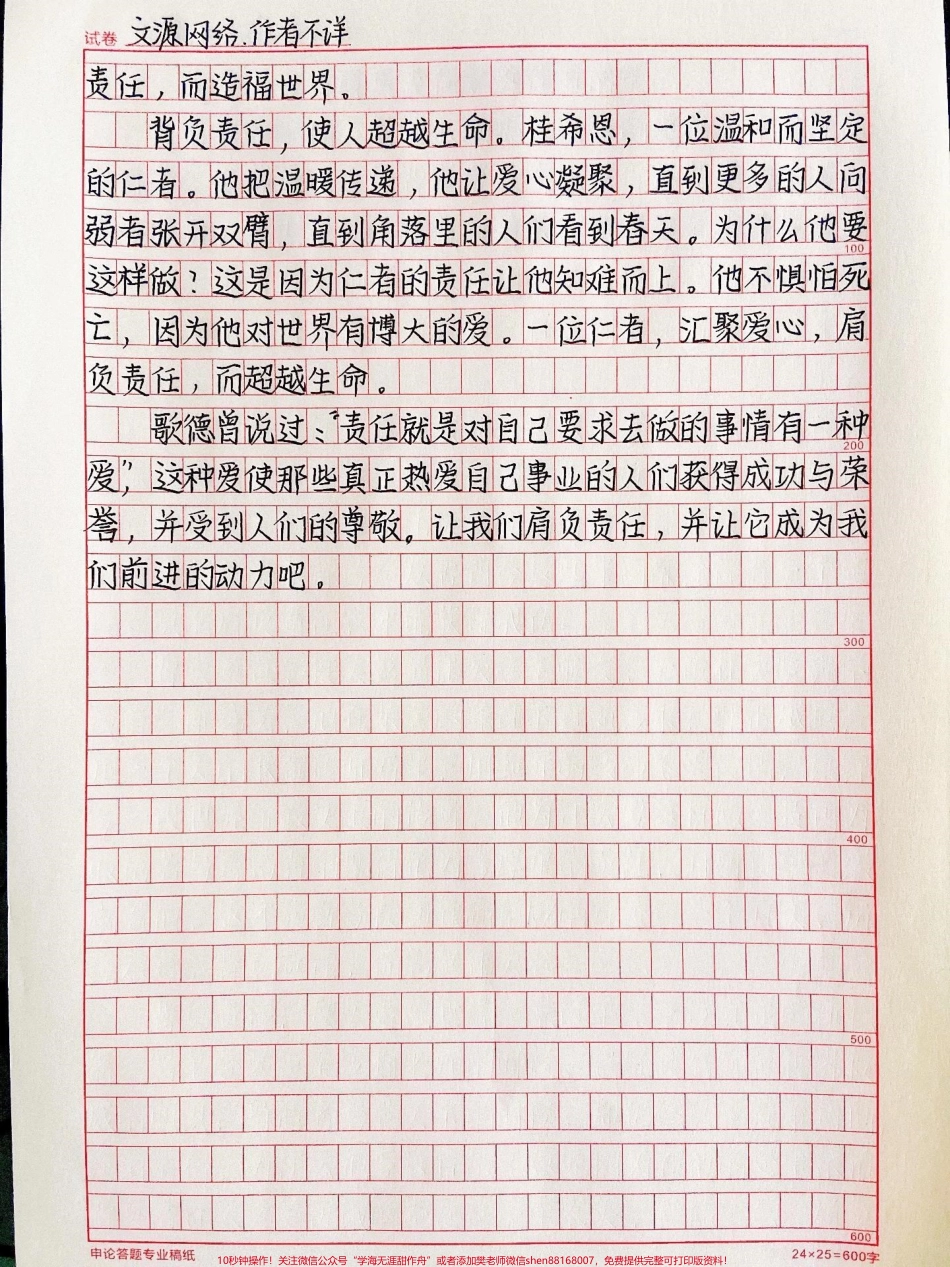 试卷 文源网络.作者不详
责任，而造福世界。
背负责任，使人超越生命。桂希恩，一位温和而坚定
的仁者。他把温暖传递，他让爱心凝聚，直到更多的人向
弱者张开双臂，直到角落里的人们看到春天。为什么他要
100
这样做？这是因为仁者的责任让他知难而上。他不惧怕死
亡，因为他对世界有博大的爱。一位仁者，汇聚爱心，肩
负责任，而超越生命。
歌德曾说过：“责任就是对自己要求去做的事情有一种
200
爱”，这种爱使那些真正热爱自己事业的人们获得成功与荣
誉，并受到人们的尊敬。让我们肩负责任，并让它成为我
们前进的动力吧。
300
400
500
600
申论答题专业稿纸 24×25=600字
10秒钟操作！关注微信公众号“学海无涯甜作舟”或者添加樊老师微信shen88168007，免费提供完整可打印版资料！